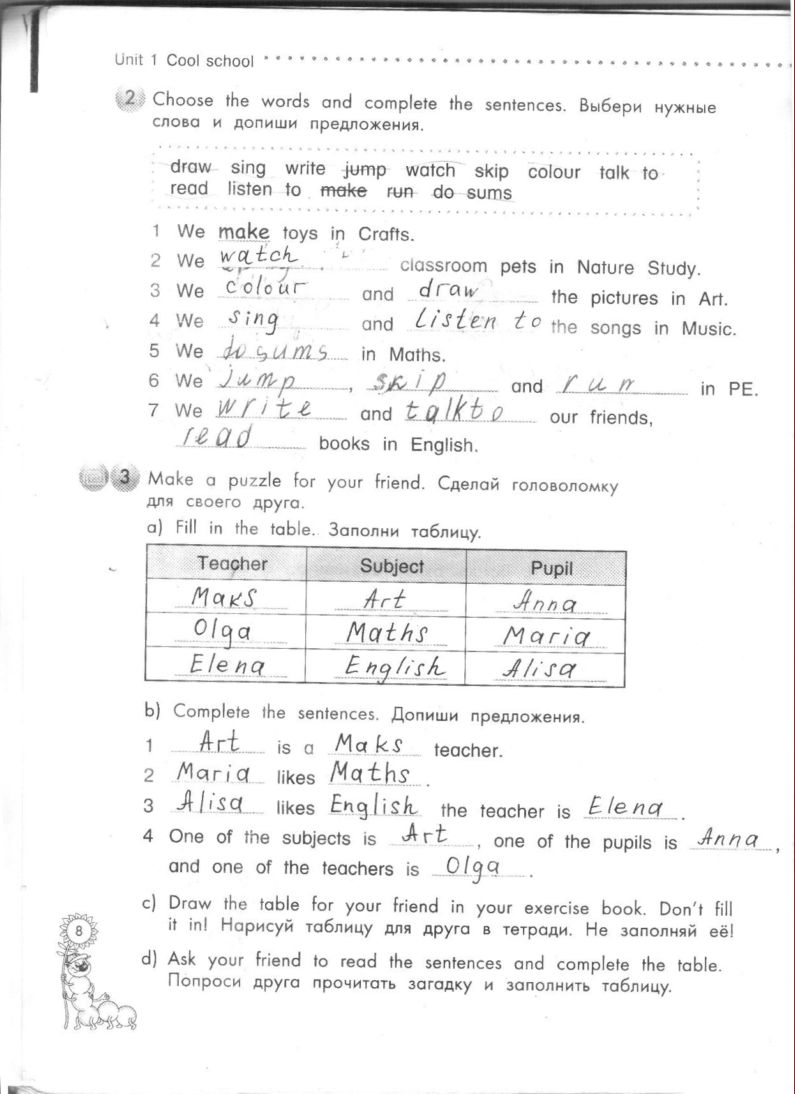 Unit 1 Cool school
2 Choose the words and complete the sentences. Выбери нужные
слова и допиши предложения.
draw sing write jump watch skip colour talk to
read listen to make run do sums
1 We make toys in Crafts.
2 We watch classroom pets in Nature Study.
3 We colour and draw the pictures in Art.
4 We sing and listen to the songs in Music.
5 We do sums in Maths.
6 We jump, skip and run in PE.
7 We write and talk to our friends,
read books in English.
3 Make a puzzle for your friend. Сделай головоломку
для своего друга.
a) Fill in the table. Заполни таблицу.
Teacher Subject Pupil
Maks Art Anna
Olga Maths Maria
Elena English Alisa
b) Complete the sentences. Допиши предложения.
1 Art is a Maks teacher.
2 Maria likes Maths.
3 Alisa likes English the teacher is Elena.
4 One of the subjects is Art, one of the pupils is Anna,
and one of the teachers is Olga.
c) Draw the table for your friend in your exercise book. Don't fill
it in! Нарисуй таблицу для друга в тетради. Не заполняй её!
8
d) Ask your friend to read the sentences and complete the table.
Попроси друга прочитать загадку и заполнить таблицу.